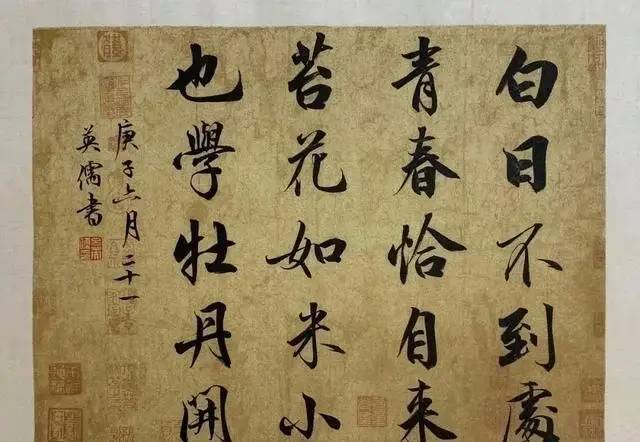 白日不到處
青春恰自来
苔花如米小
也學牡丹開
庚子六月二十一
英儒書